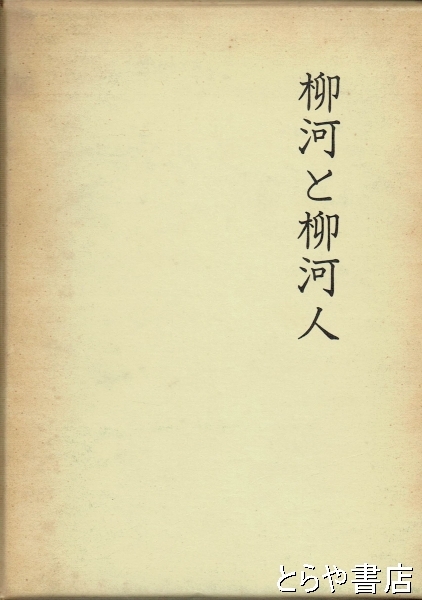 柳河と柳河人
とらや書店